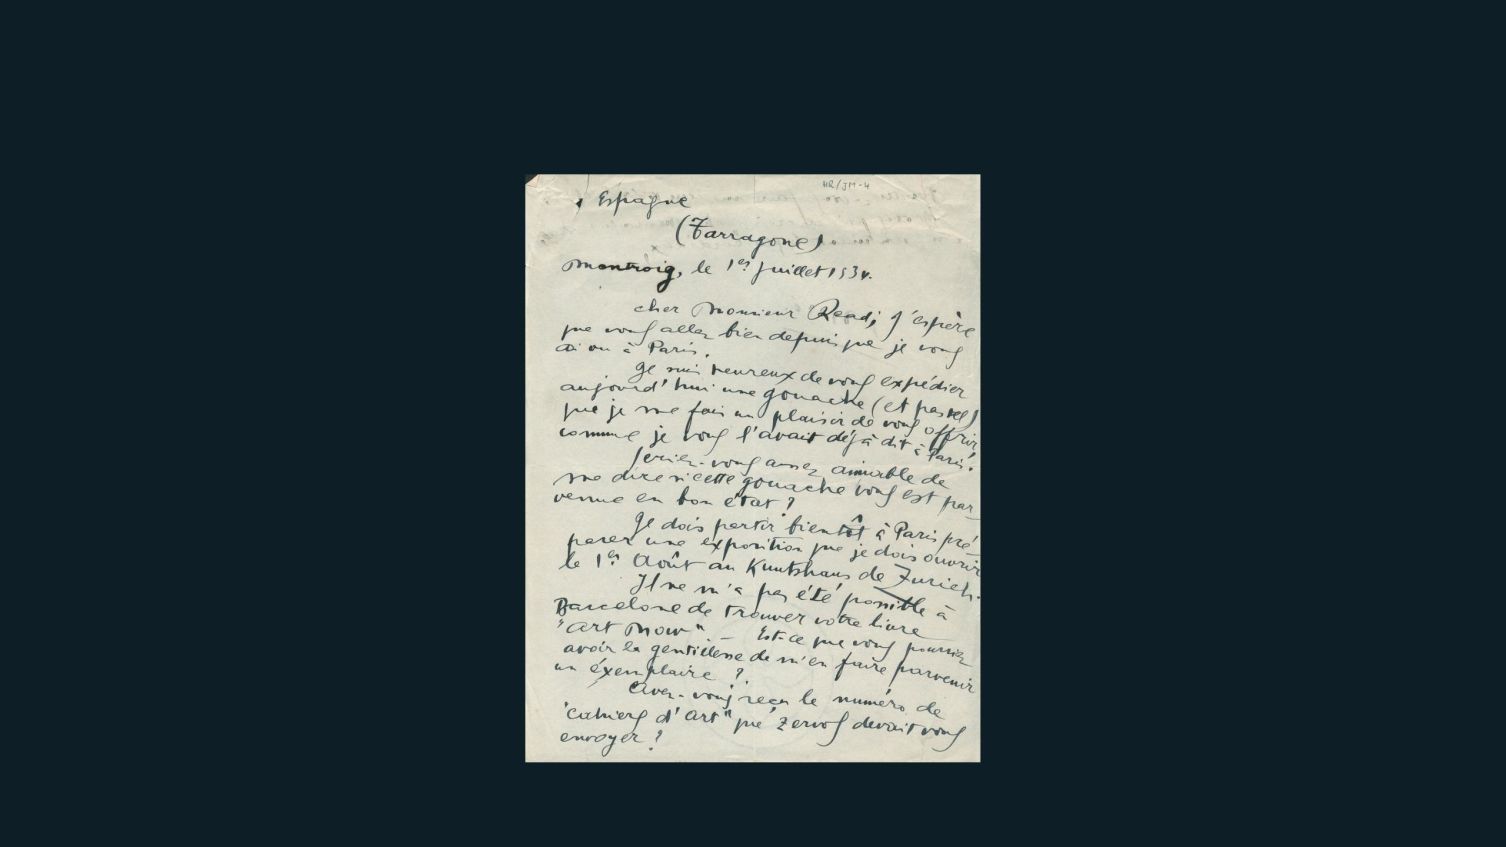 HR/JM-4
Espagne
(Tarragone)
Montroig, le 1er juillet 1934.
cher Monsieur Read, J'espère
que vous allez bien depuis que je vous
ai vu à Paris.
Je suis heureux de vous expédier
aujourd'hui une gouache (et pastel)
que je me fais un plaisir de vous offrir
comme je vous l'avait déjà dit à Paris.
Seriez-vous assez aimable de
me dire si cette gouache vous est par-
venue en bon état?
Je dois partir bientôt à Paris pré-
parer une exposition que je dois ouvrir
le 1er Août au Kuntshaus de Zurich.
Il ne m'a pas été possible à
Barcelone de trouver votre livre
"Art Now" - Est-ce que vous pourriez
avoir la gentillesse de m'en faire parvenir
un éxemplaire?
Avez-vous reçu le numéro de
"Cahiers d'Art" que Zervos devait vous
envoyer?